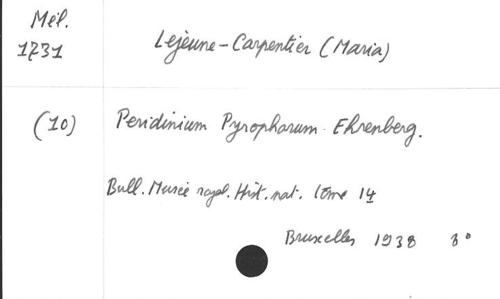 Mél.
1731
Lejeune-Carpentier (Maria)
(10)
Peridinium Pyrophorum Ehrenberg.
Bull. Musée royal. Hist. nat. tome 14
Bruxelles 1938 8°